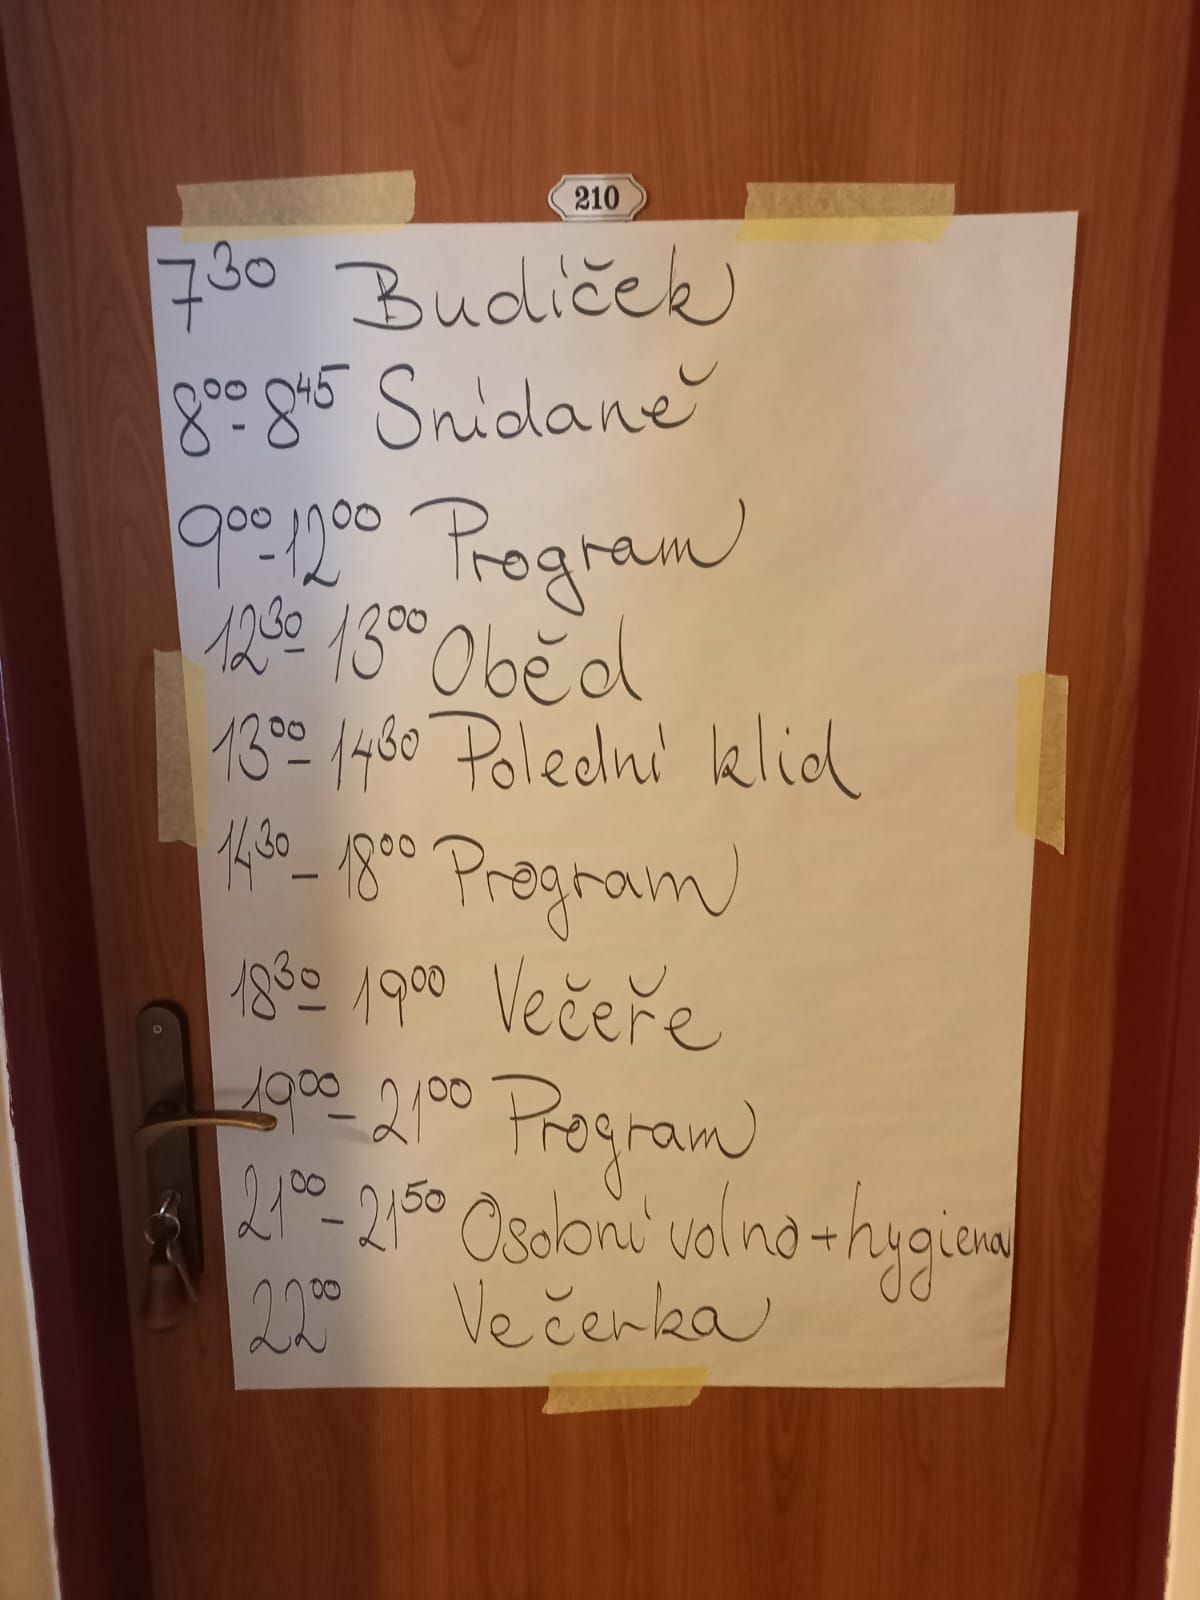 210
7³⁰ Budíček
8⁰⁰-8⁴⁵ Snídaně
9⁰⁰-12⁰⁰ Program
12³⁰-13⁰⁰ Oběd
13⁰⁰-14³⁰ Polední klid
14³⁰-18⁰⁰ Program
18³⁰-19⁰⁰ Večeře
19⁰⁰-21⁰⁰ Program
21⁰⁰-21⁵⁰ Osobní volno+hygiena
22⁰⁰ Večerka